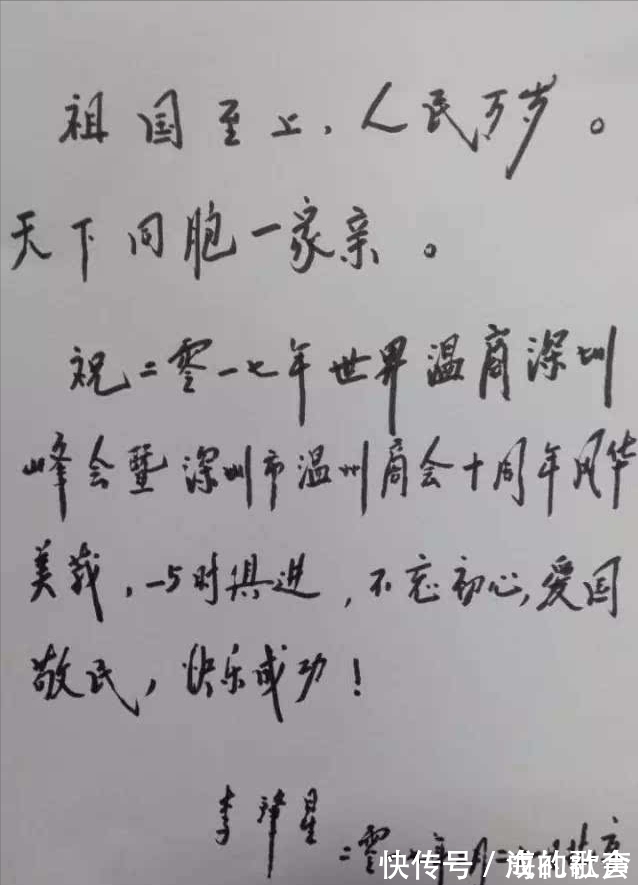 祖国至上，人民万岁。
天下同胞一家亲。
祝二零一七年世界温商深圳
峰会暨深圳市温州商会十周年风华
美哉，与时俱进，不忘初心，爱国
敬民，快乐成功！
李肇星
二零
快传号／海的歌会